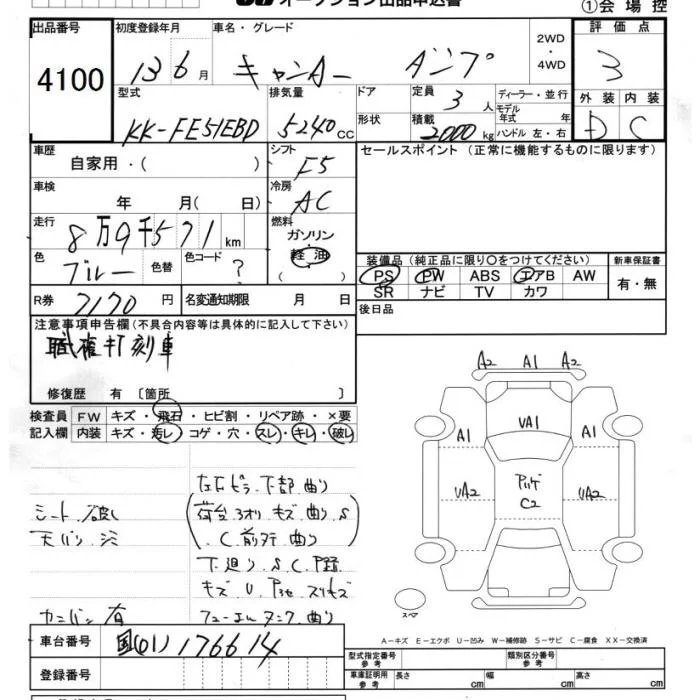 オークション出品申込書
①会場控
出品番号 4100
初度登録年月 13 6月
車名・グレード キャンター ダンプ
2WD・4WD
評価点 3
型式 KK-FE51EBD
排気量 5240cc
ドア
形状
定員 3人
積載 2000kg
ディーラー・並行
モデル年式 年
ハンドル 左・右
外装 D
内装 C
車歴 自家用・( )
シフト F5
セールスポイント(正常に機能するものに限ります)
車検 年 月( 日)
冷房 AC
走行 8万9千571km
燃料 ガソリン 軽油 ( )
色 ブルー 色替
色コード ?
装備品(純正品に限り○をつけてください)
新車保証書 有・無
PS PW ABS エアB AW
SR ナビ TV カワ
R券 7170円
名変通知期限 月 日
後日品
注意事項申告欄(不具合内容等は具体的に記入して下さい)
職権打刻車
修復歴 有 〔箇所 〕
検査員記入欄
FW キズ・飛石・ヒビ割・リペア跡・×要
内装 キズ・汚レ・コゲ・穴・スレ・キレ・破レ
シート破れ
天バリシミ
左右ピラ下部曲り
(荷台3オリキズ曲りS
C前タテ曲り)
下廻りS.C.
キズU
フューエルタンク曲り
有
A2 A1 A2
VA1
A1 A1
UA2 UA2
C2
スペア
A-キズ E-エクボ U-凹み W-補修跡 S-サビ C-腐食 XX-交換済
車台番号 国(01)176614
登録番号
型式指定番号 参考
類別区分番号 参考
車庫証明用 参考 長さ cm 幅 cm 高さ cm